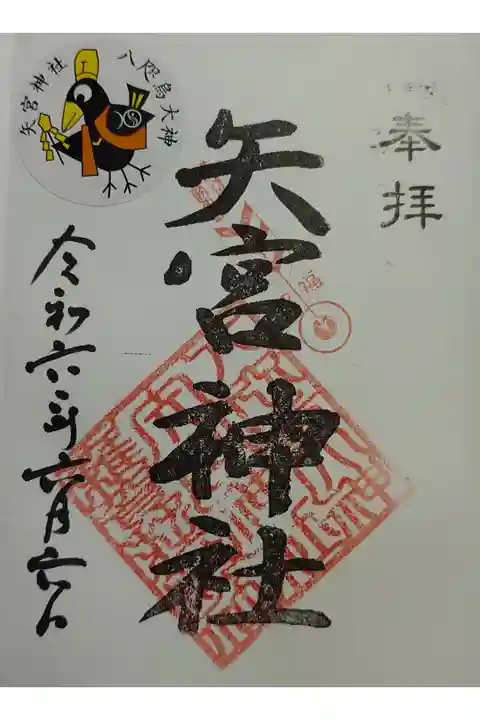 奉拝
矢宮神社
令和六年六月六日
矢宮神社 八咫烏大神